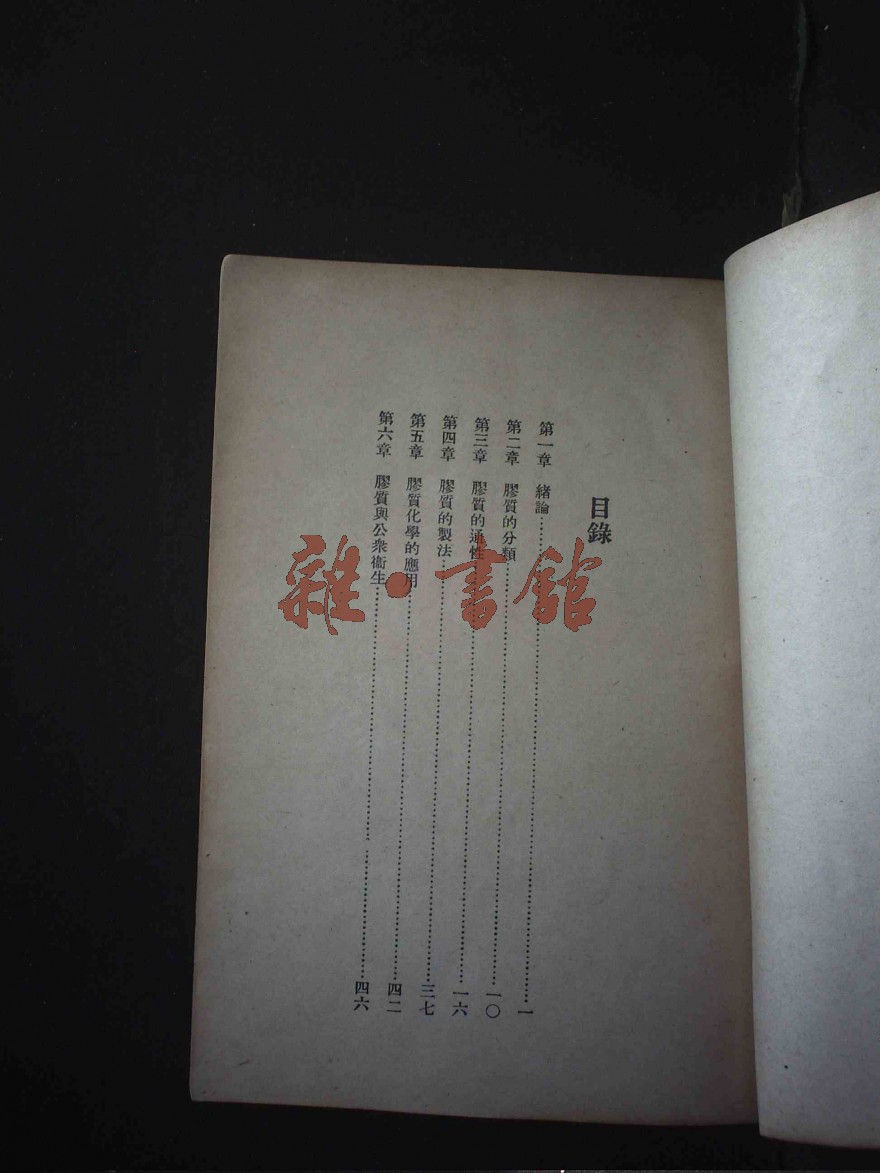 目錄
第一章　緒論……一
第二章　膠質的分類……一〇
第三章　膠質的通性……一六
第四章　膠質的製法……三七
第五章　膠質化學的應用……四二
第六章　膠質與公衆衞生……四六
雜·書館